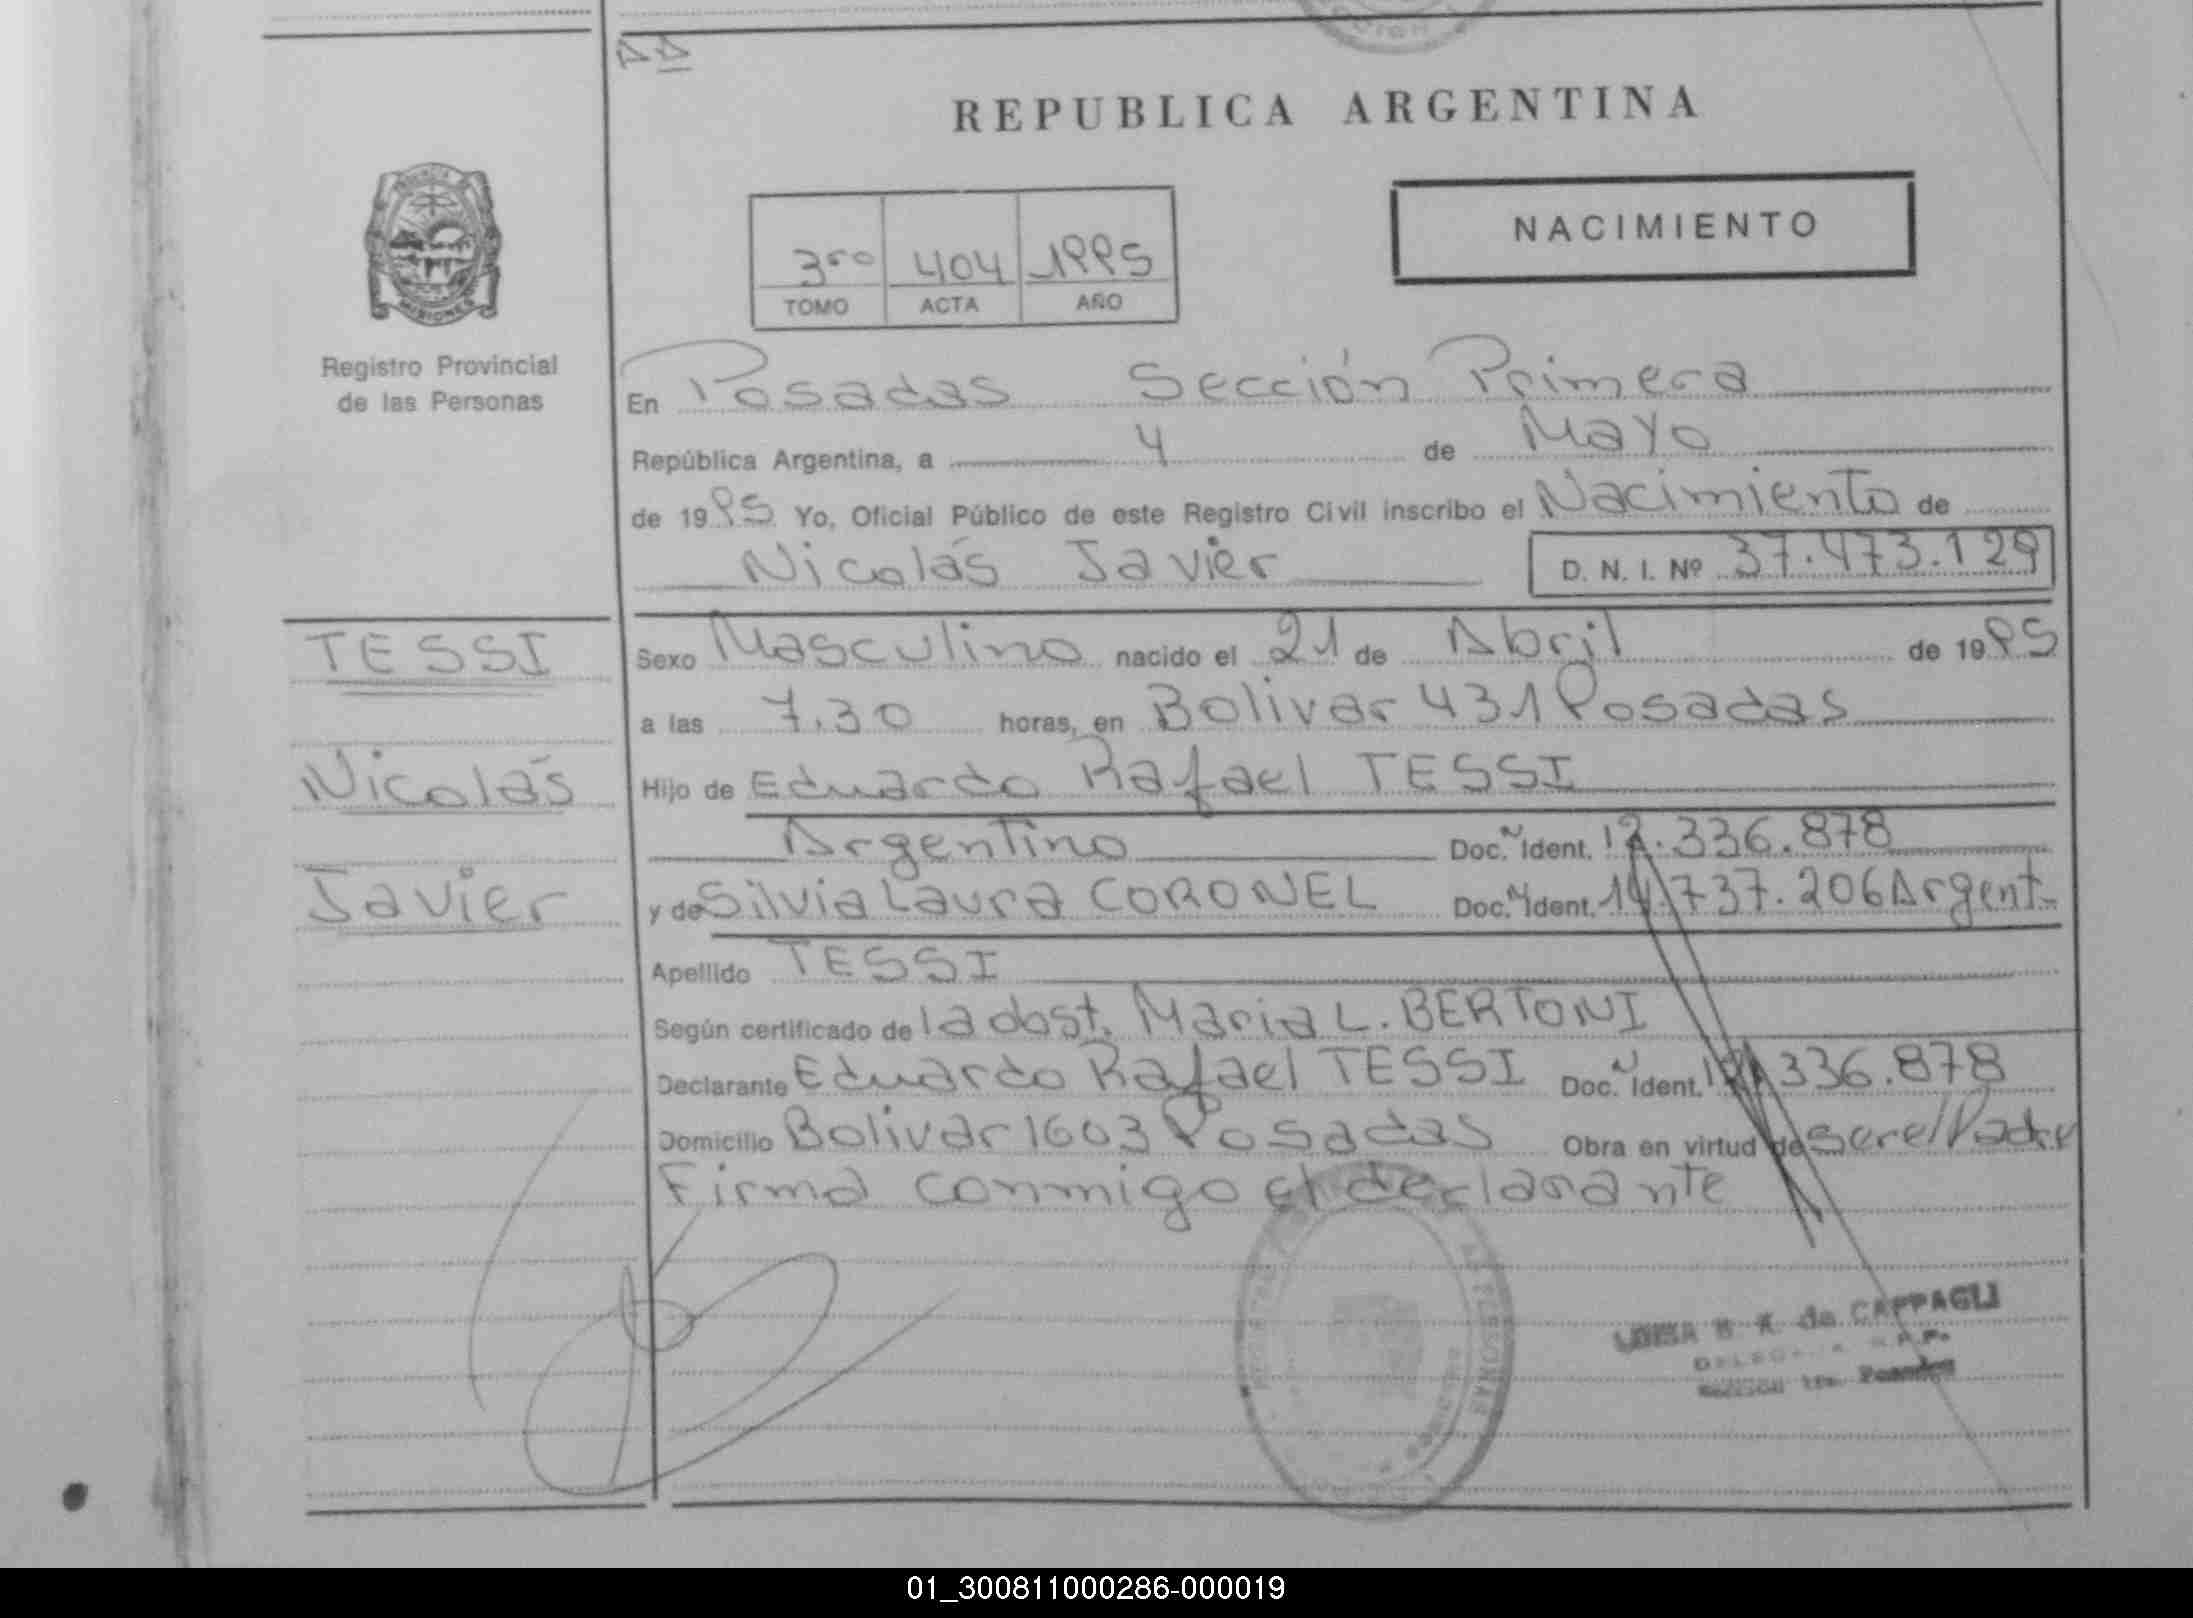 REPUBLICA ARGENTINA
NACIMIENTO
3ro 404 1995
TOMO ACTA AÑO
MISIONES
Registro Provincial
de las Personas
En Posadas Sección Primera
República Argentina, a 4 de Mayo
de 1995 Yo, Oficial Público de este Registro Civil inscribo el Nacimiento de
Nicolás Javier D. N. I. Nº 37.473.129
TESSI
Nicolás
Javier
Sexo Masculino nacido el 21 de Abril de 1995
a las 7.30 horas, en Bolivar 431 Posadas
Hijo de Eduardo Rafael TESSI
Argentino Doc. Ident. 12.336.878
y de Silvia Laura CORONEL Doc. Ident. 14.737.206 Argent.
Apellido TESSI
Según certificado de la obst. Maria L. BERTONI
Declarante Eduardo Rafael TESSI Doc. Ident. 12.336.878
Domicilio Bolivar 1603 Posadas Obra en virtud de ser el Padre
Firma conmigo el declarante
de CAPPAGLI
Posadas
01_300811000286-000019